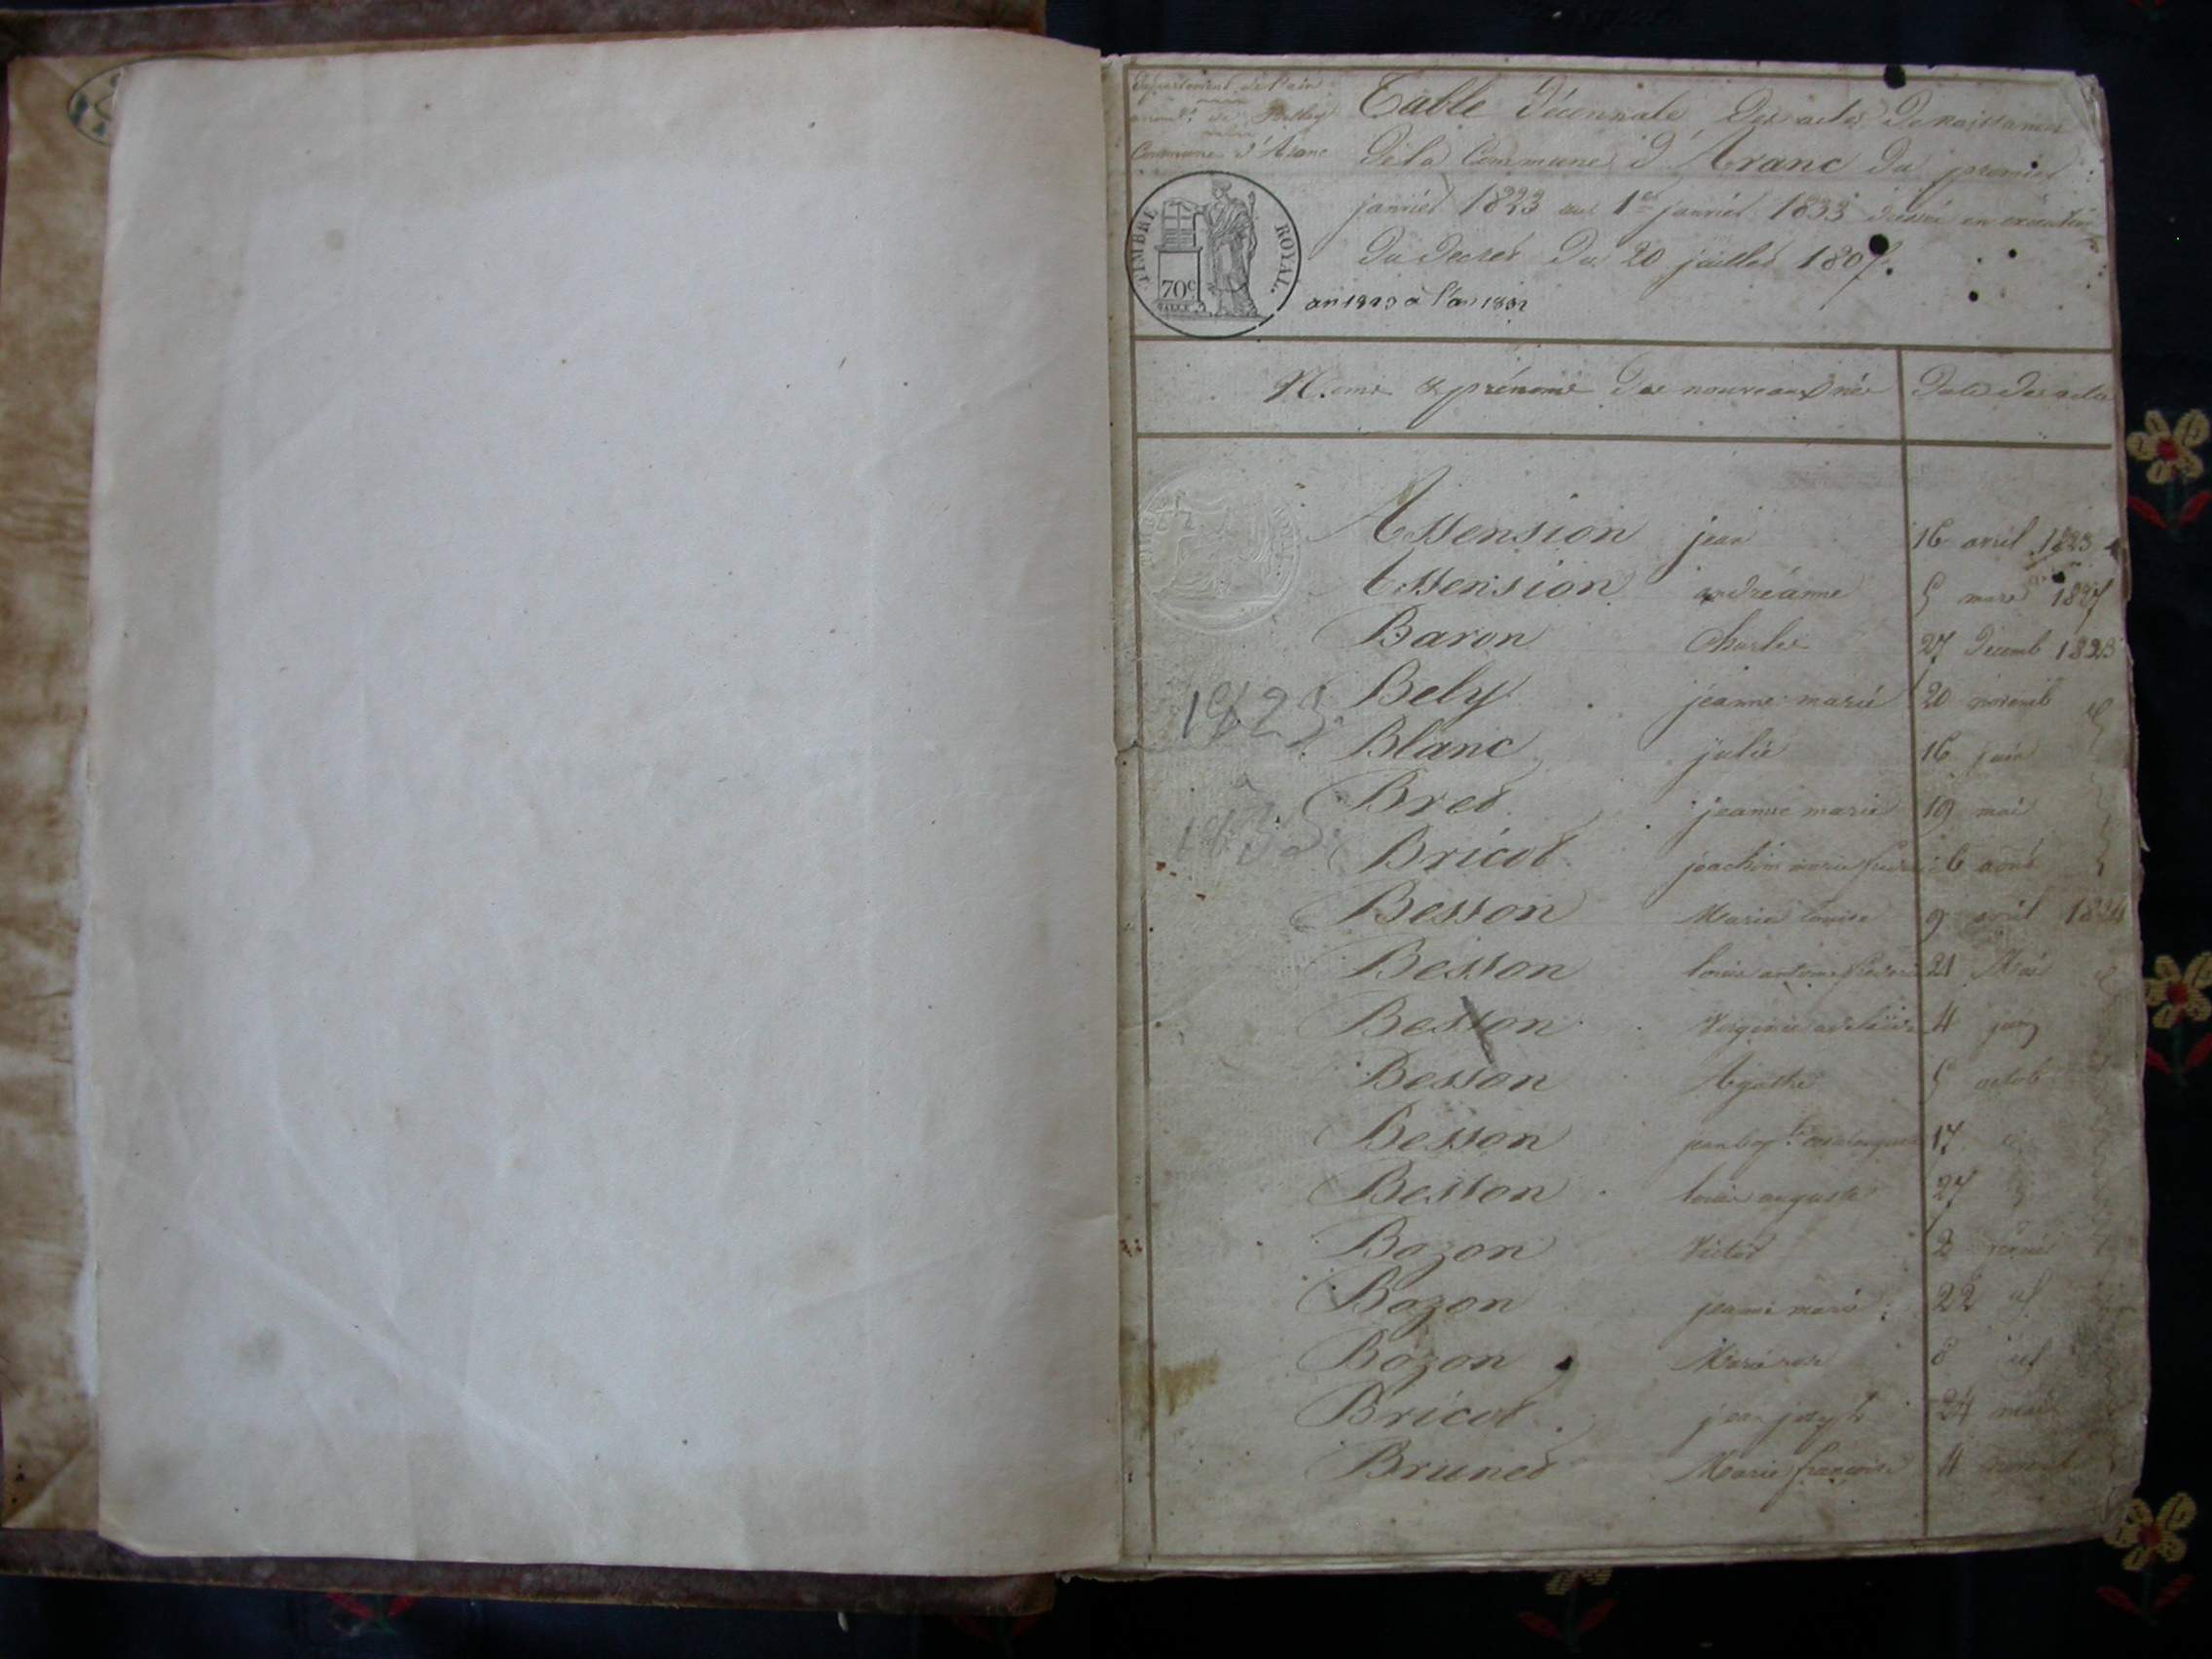 Département de l'ain
arrond.t de Belley
Commune d'Aranc
Table Décennale des actes de naissances
de la Commune d'Aranc du premier
janvier 1823 au 1er janvier 1833 dressé en exécution
du decret du 20 juillet 1807.
TIMBRE ROYAL.
70c
an 1823 a l'an 1832
Noms & prénoms des nouveaux nés Date des actes
Assension jean 16 avril 1823
Assension andréanne 5 mars 1827
Baron Charles 27 Decemb 1823
Bely jeanne marie 20 novemb
1823
Blanc julie 16 juin
Bret jeanne marie 19 mai
1833
Bricot joachim marie 6 août
Besson Marie louise 9 avril 1824
Besson louis antoine 21 Mai
Besson Virginie adelaïde 4 juin
Besson Agathe 5 octob
Besson jean bapt.te 17
Besson louis auguste 27
Bozon Victor 2
Bozon jeanne marie 22
Bozon Marie rose 8
Bricot jean joseph 24 mai
Brunet Marie françoise 4